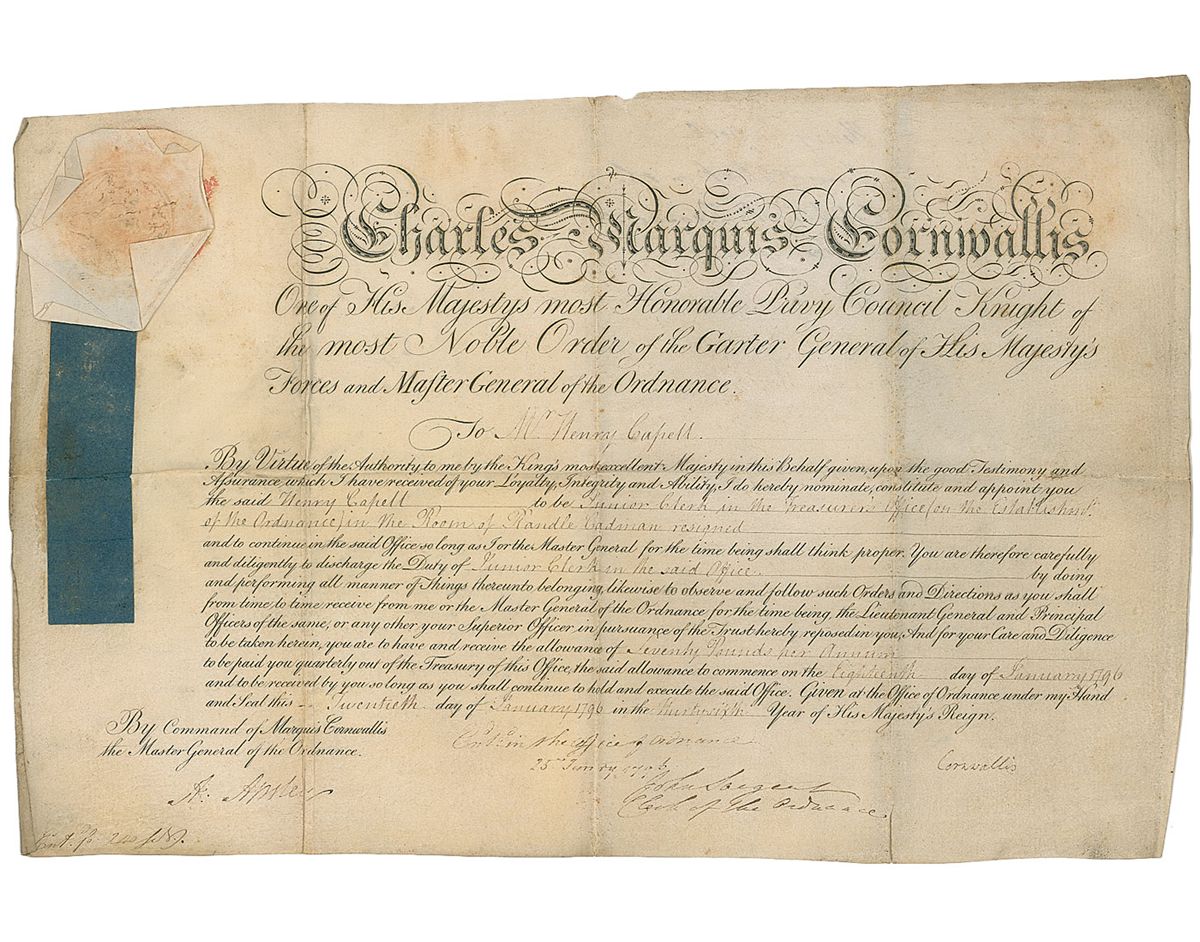 Charles Marquis Cornwallis
One of His Majestys most Honorable Privy Council Knight of
the most Noble Order of the Garter General of His Majesty's
Forces and Master General of the Ordnance.
To Mr. Henry Capell.
By Virtue of the Authority to me by the King's most excellent Majesty in this Behalf given, upon the good Testimony and
Assurance which I have received of your Loyalty, Integrity and Ability, I do hereby nominate, constitute and appoint you
the said Henry Capell to be Junior Clerk in the Treasurer's Office (on the Establishmt.
of the Ordnance) in the Room of Randle Cadman resigned
and to continue in the said Office so long as I or the Master General for the time being shall think proper. You are therefore carefully
and diligently to discharge the Duty of Junior Clerk in the said Office by doing
and performing all manner of Things thereunto belonging, likewise to observe and follow such Orders and Directions as you shall
from time to time receive from me or the Master General of the Ordnance for the time being, the Lieutenant General and Principal
Officers of the same, or any other your Superior Officer, in pursuance of the Trust hereby reposed in you, And for your Care and Diligence
to be taken herein, you are to have and receive the allowance of Seventy Pounds per Annum
to be paid you quarterly out of the Treasury of this Office, the said allowance to commence on the Eighteenth day of January 1796
and to be received by you so long as you shall continue to hold and execute the said Office. Given at the Office of Ordnance under my Hand
and Seal this Twentieth day of January 1796 in the thirty sixth Year of His Majesty's Reign.
By Command of Marquis Cornwallis
the Master General of the Ordnance.
Entd. in the Office of Ordnance
25 1796
Cornwallis
Apsley
John Sargent
Clerk of the Ordnance